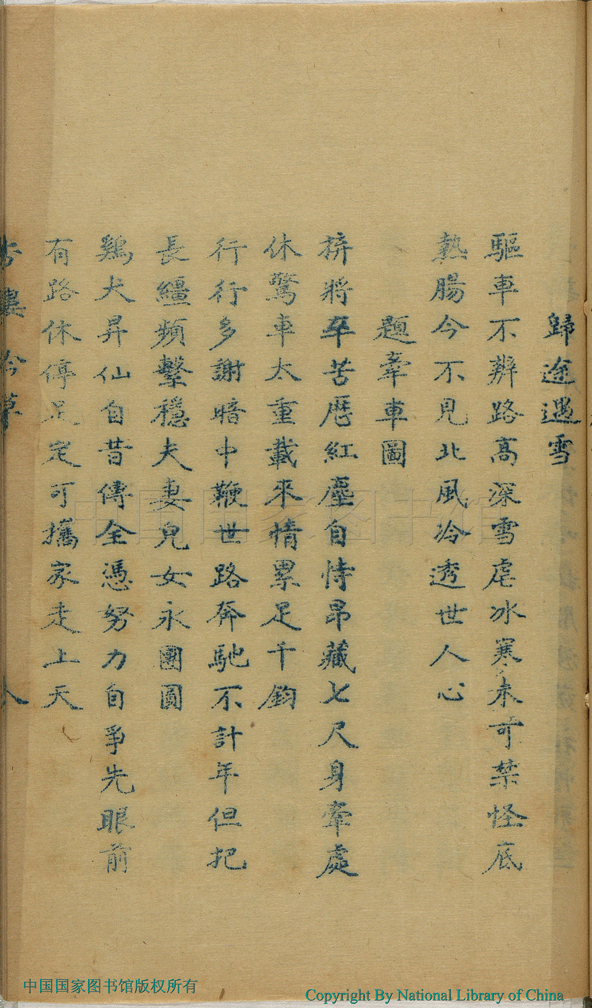 歸途遇雪
驅車不辨路高深雪虐冰寒未可禁怪底
熱腸今不見北風冷透世人心
題牽車圖
拚將辛苦歷紅塵自恃昂藏七尺身牽處
休驚車太重載來情累足千鈞
行行多謝暗中鞭世路奔馳不計年但把
長繮頻繫穩夫妻兒女永團圓
鷄犬昇仙自昔傳全憑努力自爭先眼前
有路休停足定可攜家走上天
吟草
八
中国国家图书馆
中国国家图书馆版权所有
Copyright By National Library of China